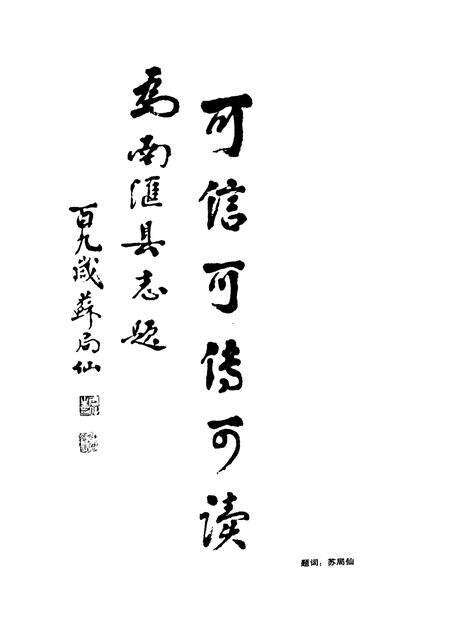 可信可传可读
为南汇县志题
百九岁苏局仙
题词：苏局仙